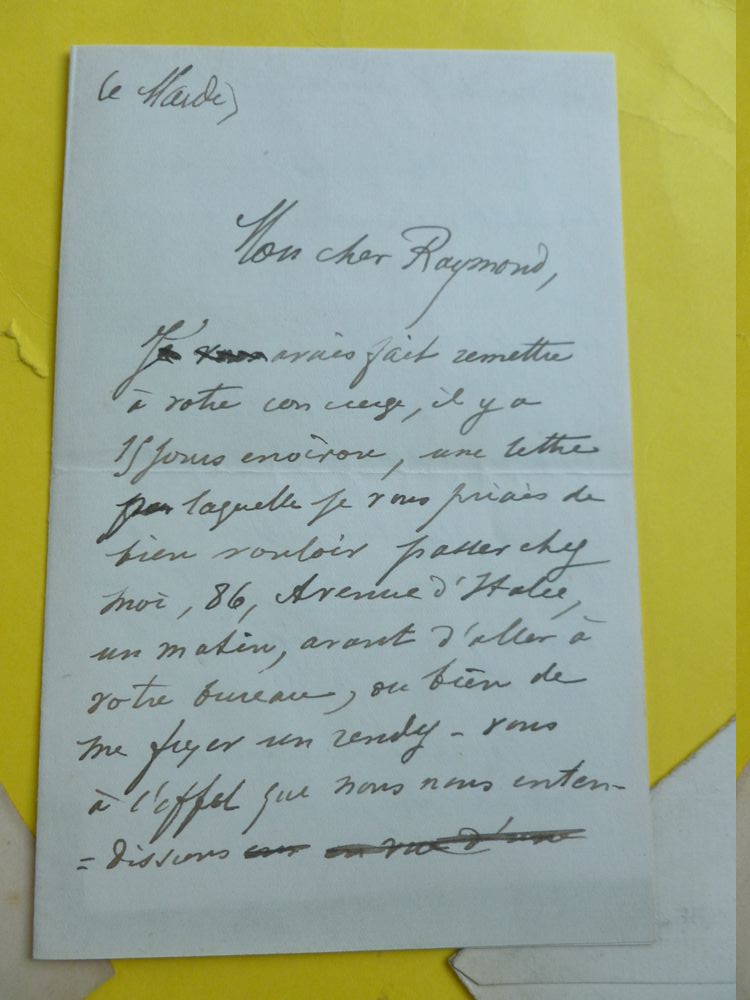 le Mardi
Mon cher Raymond,
Je vous avais fait remettre
à votre concierge, il y a
15 jours environ, une lettre
par laquelle je vous priais de
bien vouloir passer chez
moi, 86, Avenue d'Italie,
un matin, avant d'aller à
votre bureau, ou bien de
me fixer un rendez-vous
à l'effet que nous nous enten-
=dissions en vue d'une